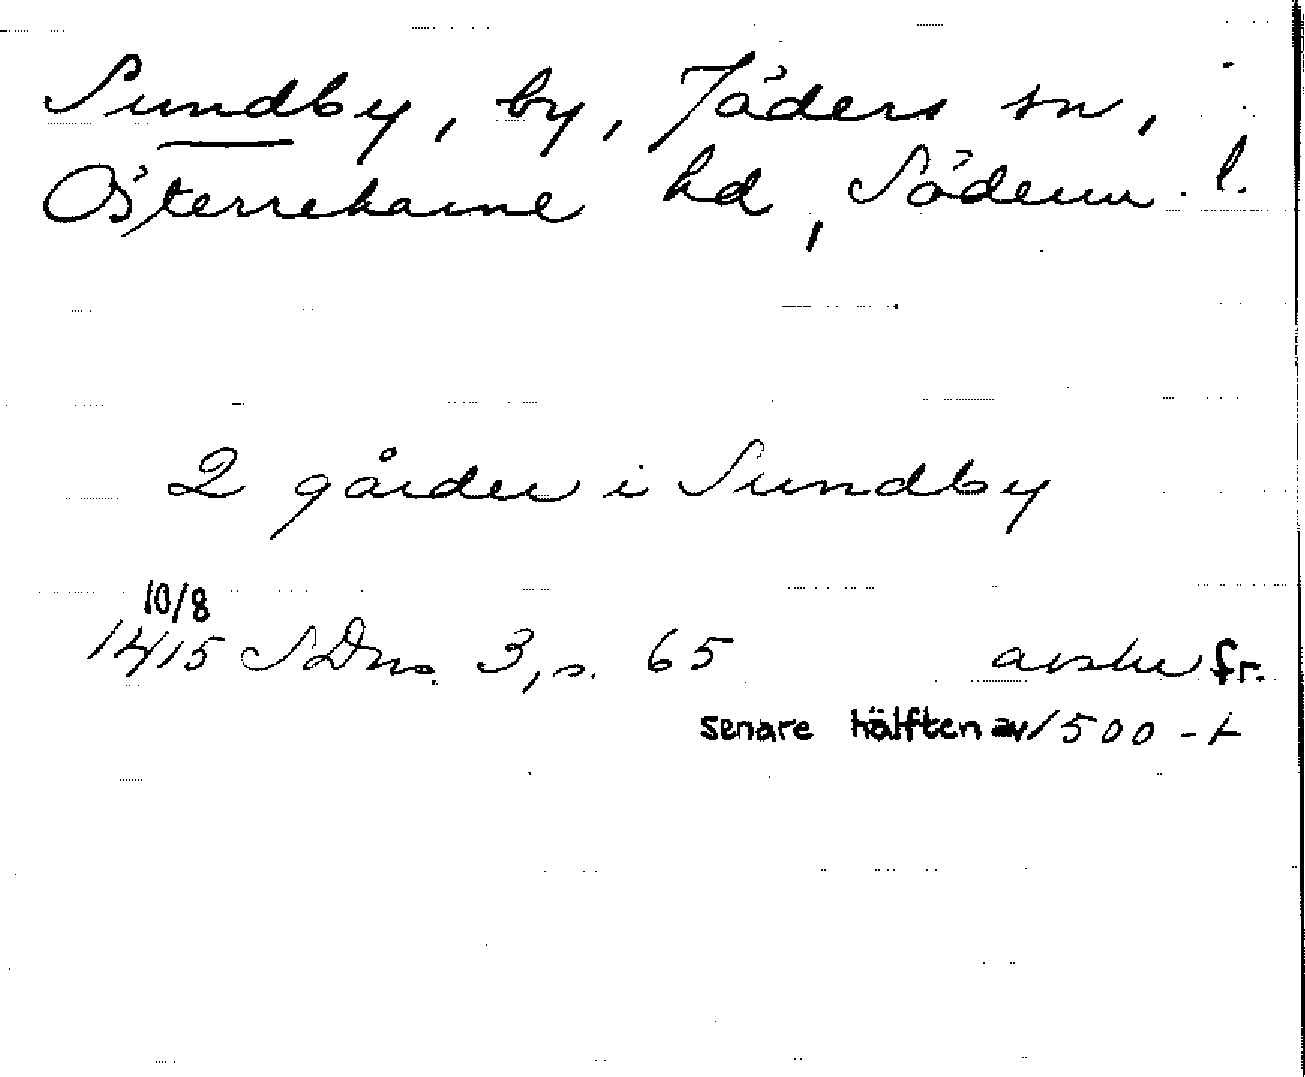 Sundby, by, Jäders sn,
Österrekarne hd, Söderm. l.
2 gårder i Sundby
10/8
1415 SDns 3, s. 65 avskr fr.
senare hälften av 1500-t